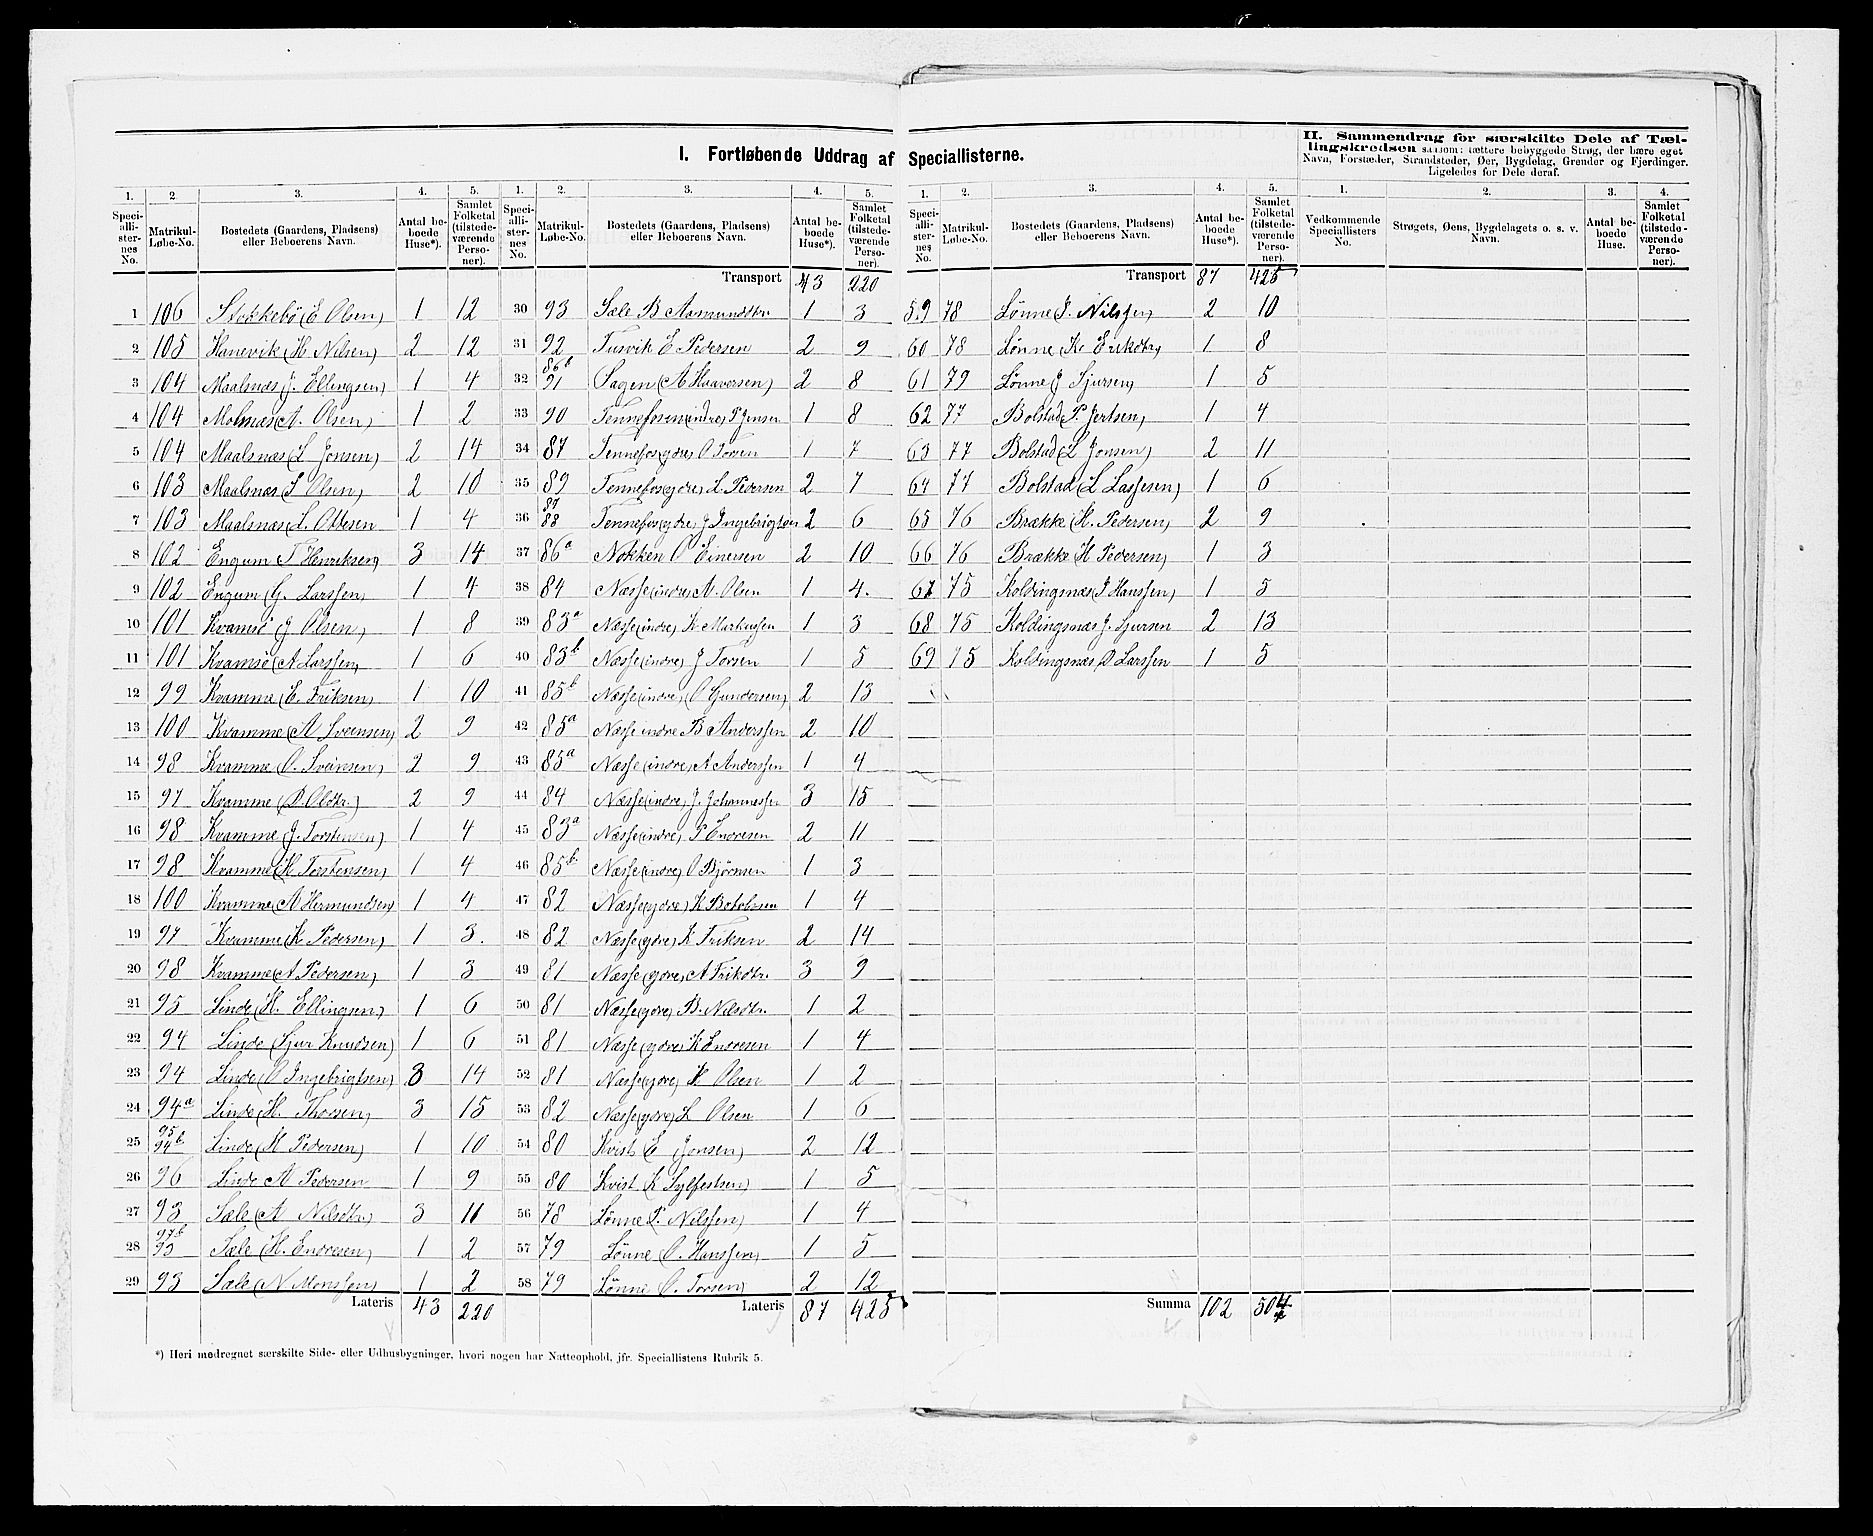 I. Fortløbende Uddrag af Speciallisterne.
II. Sammendrag for særskilte Dele af Tæl-
lingskredsen saasom: tættere bebyggede Strøg, der bære eget
Navn, Forstæder, Strandsteder, Øer, Bygdelag, Grender og Fjerdinger.
Ligeledes for Dele deraf.
1. 2. 3. 4. 5. 1. 2. 3. 4. 5. 1. 2. 3. 4. 5. 1. 2. 3. 4.
Speci-alli-ster-nes No. Matrikul-Løbe-No. Bostedets (Gaardens, Pladsens) eller Beboerens Navn. Antal be-boede Huse*). Samlet Folketal (tilstede-værende Perso-ner).
Speci-alli-ster-nes No. Matrikul-Løbe-No. Bostedets (Gaardens, Pladsens) eller Beboerens Navn. Antal be-boede Huse*). Samlet Folketal (tilstede-værende Perso-ner).
Speci-alli-ster-nes No. Matrikul-Løbe-No. Bostedets (Gaardens, Pladsens) eller Beboerens Navn. Antal be-boede Huse*). Samlet Folketal (tilstede-værende Perso-ner).
Vedkommende Speciallisters No. Strøgets, Øens, Bygdelagets o. s. v. Navn. Antal be-boede Huse. Samlet Folketal (tilstede-værende Perso-ner).
1 106 Stokkebö (E Olsen) 1 12
2 105 Hanevik (H Nilsen) 2 12
3 104 Maalsnæs (J. Ellingsen) 1 4
4 104 Molnæs (A. Olsen) 1 2
5 104 Maalsnæs (L Jonsen) 2 14
6 103 Maalsnæs (S Olsen) 2 10
7 103 Maalsnæs (L. Ottesen 1 4
8 102 Engum T Henriksen) 3 14
9 102 Engum (G. Larssen) 1 4
10 101 Kvamsö (J Olsen) 1 8
11 101 Kvamsö (A Larssen) 1 6
12 99 Kvamme (E. Eriksen) 1 10
13 100 Kvamme (A Sveensen) 2 9
14 98 Kvamme (O. Sveinsen) 2 9
15 97 Kvamme (D. Oldtr.) 2 9
16 98 Kvamme (J. Torstensen) 1 4
17 98 Kvamme (H Torstensen) 1 4
18 100 Kvamme (A Hermundsen) 1 4
19 97 Kvamme (K Pedersen) 1 3.
20 98 Kvamme (A Pedersen) 1 3
21 95 Linde (H. Ellingsen) 1 6
22 94 Linde (Sjur Knudsen) 1 6
23 94 Linde (O Ingebrigtsen) 3 14
24 94a Linde (H. Thorsen) 3 15
25 95 94b Linde (H Pedersen) 1 10
26 96 Linde A Pedersen 1 9
27 93 Sæle (A Nilsdtr.) 3 11
28 97b 93 Sæle (H. Endresen) 1 2
29 93 Sæle (N Monssen) 1 2
Lateris 43 220
Transport 43 220
30 93 Sæle B Aasmundtr. 1 3
31 92 Tusvik E Pedersen 2 9
32 86b 91 Sagen (A Haaversen) 2 8
33 90 Tennefosen (indre) P Jensen 1 8
34 87 Tennefos (ydre) O Torsen 1 7
35 89 Tennefos (ydre) L. Pedersen 2 7
36 87 88 Tennefos (ydre) J Ingebrigtsen 2 6
37 86a Nokken O Einersen 2 10
38 84 Næsse (indre) A. Olsen 1 4.
39 83a Næsse (indre) K Markussen 1 3
40 83b Næsse (indre) J Torsen 1 5
41 85b Næsse (indre) (O Gundersen) 2 13
42 85a Næsse indre B Anderssen 2 10
43 85a Næsse (indre) A Anderssen 1 4
44 84 Næsse (indre) J. Johannessen 3 15
45 83a Næsse (indre) P Endresen 2 11
46 85b Næsse (indre) O Björnsen 1 3
47 82 Næsse (ydre) K Botolvsen 1 4
48 82 Næsse (ydre) K Eriksen 2 14
49 81 Næsse (ydre) A Erikdtr. 3 9
50 81 Næsse (ydre) B. Nilsdtr. 1 2
51 81 Næsse (ydre) K Endresen 1 4
52 81 Næsse (ydre) K. Olsen 1 2
53 82 Næsse (ydre) L Olsen 1 6
54 80 Kvist E Jonsen) 2 12
55 80 Kvist (K Sylfestsen) 1 5
56 78 Lönne (P. Nilssen) 1 4
57 79 Lönne (O. Hanssen) 1 5
58 79 Lönne (O. Torsen) 2 12
Lateris 87 425
Transport 87 425
59 78 Lönne (J. Nilssen) 2 10
60 78 Lönne (K. Erikdtr) 1 8
61 79 Lönne (J Sjursen) 1 5
62 77 Bolstad (P. Jertsen) 1 4
63 77 Bolstad (L Jonsen) 2 11
64 77 Bolstad (L Lassesen) 1 6
65 76 Brække (K. Pedersen) 2 9
66 76 Brække (H Pedersen) 1 3
67 75 Koldingsnæs (J Hanssen) 1 5
68 75 Koldingsnæs J. Sjursen 2 13
69 75 Koldingsnæs D Larssen 1 5
Summa 102 504
*) Heri medregnet særskilte Side- eller Udhusbygninger, hvori nogen har Natteophold, jfr. Speciallistens Rubrik 5.